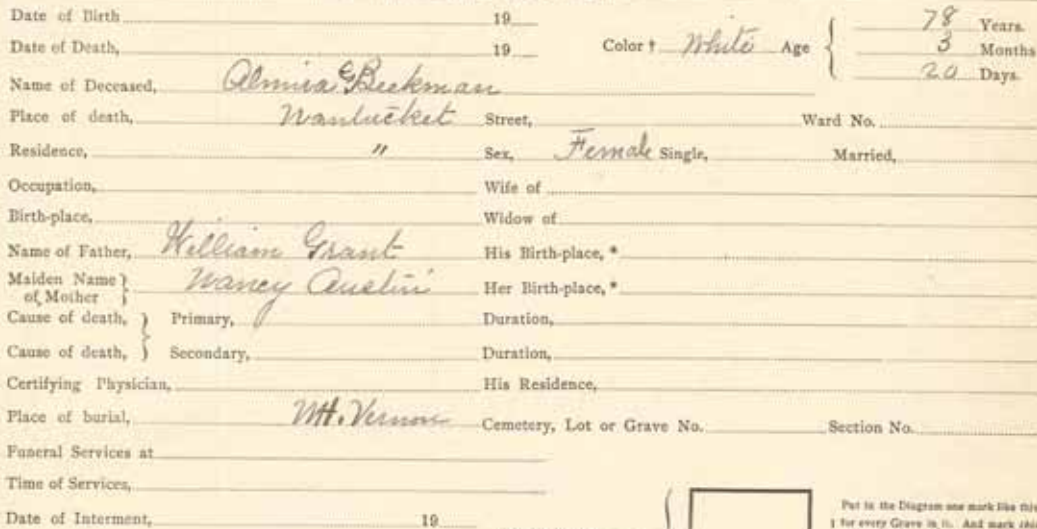 Date of Birth 19
Date of Death, 19 Color † White Age { 78 Years.
3 Months
20 Days.
Name of Deceased, Almira G Beekman
Place of death, Nantucket Street, Ward No.
Residence, " Sex, Female Single, Married,
Occupation, Wife of
Birth-place, Widow of
Name of Father, William Grant His Birth-place, *
Maiden Name of Mother } Nancy Austin Her Birth-place, *
Cause of death, } Primary, Duration,
Cause of death, } Secondary, Duration,
Certifying Physician, His Residence,
Place of burial, Mt. Vernon Cemetery, Lot or Grave No. Section No.
Funeral Services at
Time of Services,
Date of Interment, 19
Put in the Diagram one mark like this
for every Grave in it. And mark this